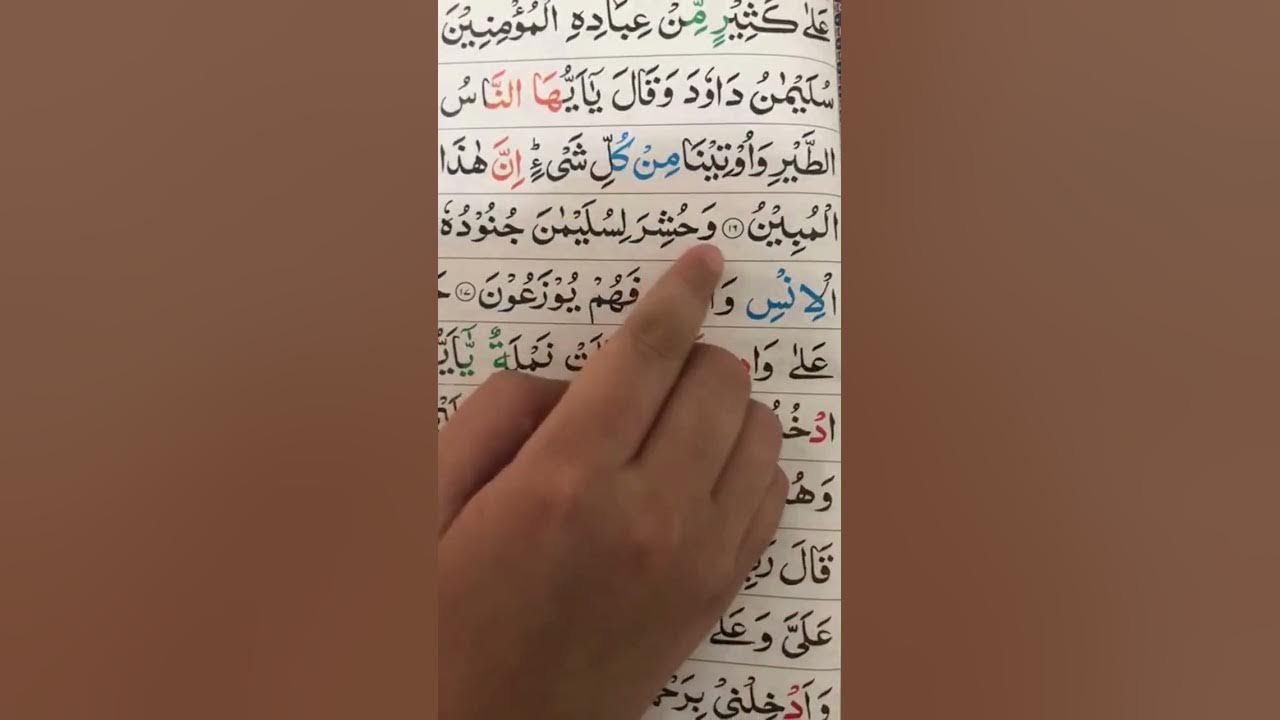 عَلٰى كَثِيْرٍ مِّنْ عِبَادِهِ الْمُؤْمِنِيْنَ
سُلَيْمٰنُ دَاوٗدَ وَقَالَ يٰۤاَيُّهَا النَّاسُ
الطَّيْرِ وَاُوْتِيْنَا مِنْ كُلِّ شَيْءٍؕ اِنَّ هٰذَا
الْمُبِيْنُ ۱۶ وَحُشِرَ لِسُلَيْمٰنَ جُنُوْدُهٗ
الْاِنْسِ فَهُمْ يُوْزَعُوْنَ ۱۷
عَلٰى نَمْلَةٌ
قَالَ
عَلَيَّ وَعَلٰى
وَاَدْخِلْنِيْ